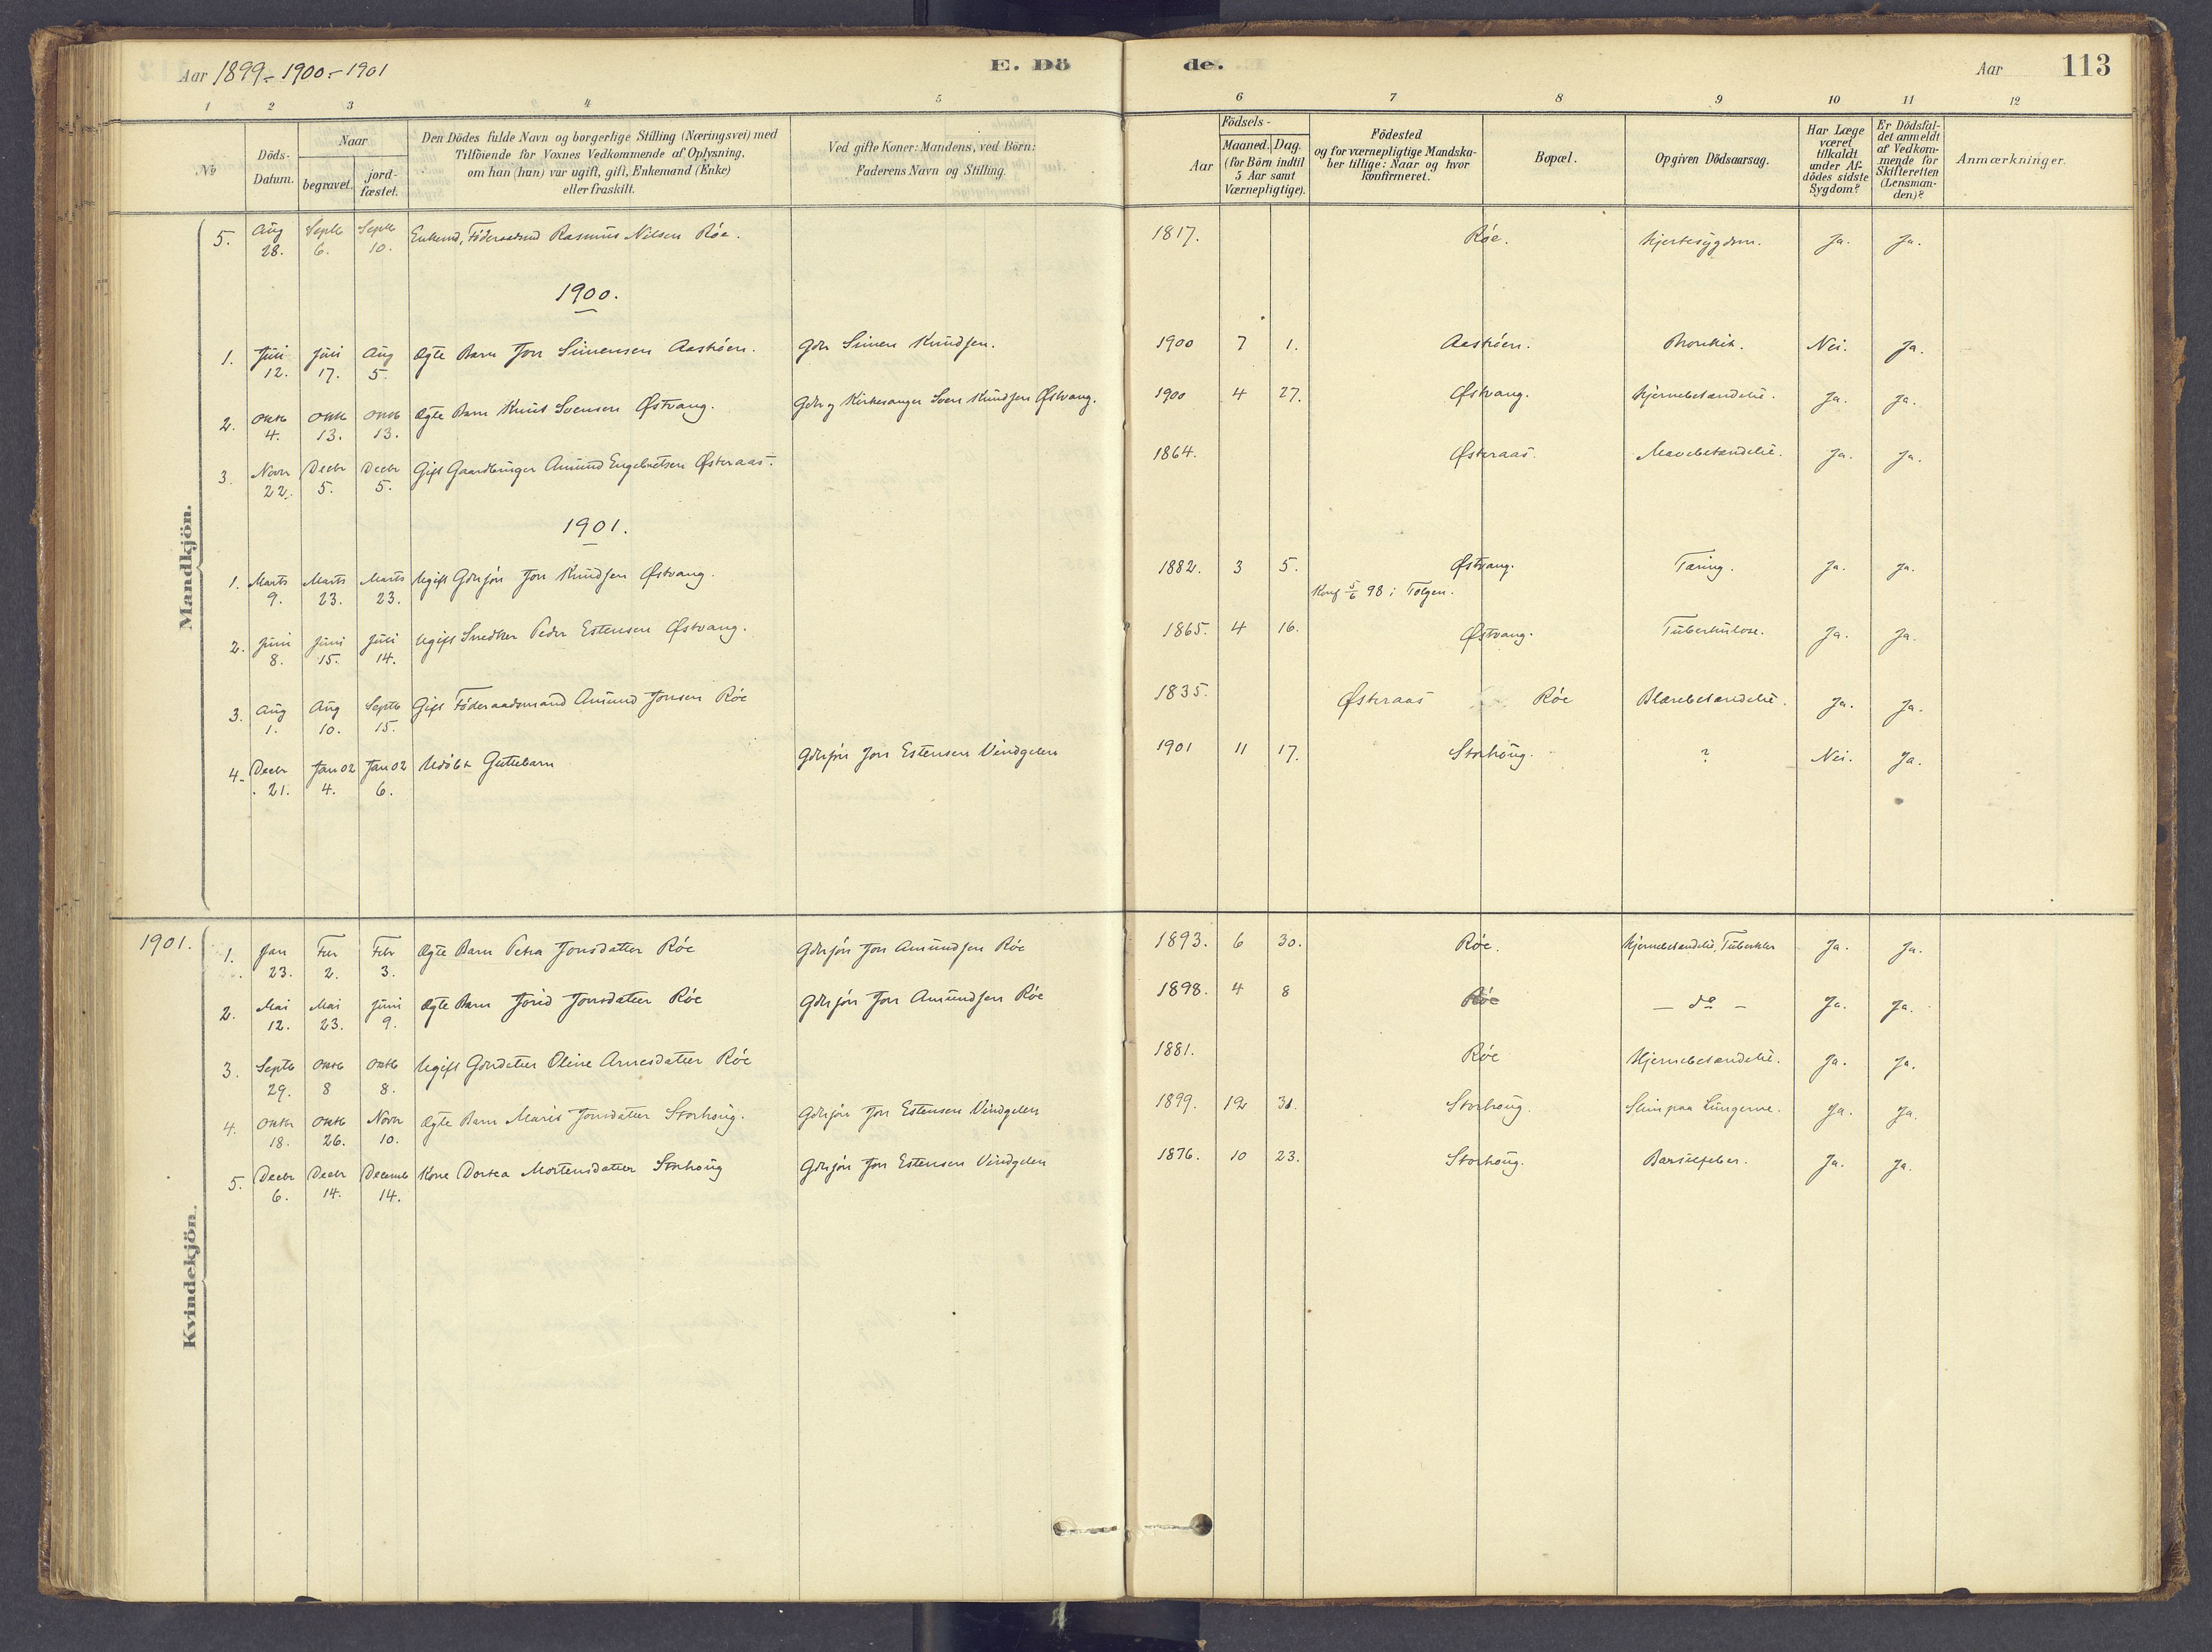 Aar 1899-1900-1901
E. Dö
de.
Aar
113
1 2 3 4 5 6 7 8 9 10 11 12
No
Döds-Datum.
Naar
begravet.
jord-fæstet.
Den Dödes fulde Navn og borgerlige Stilling (Næringsvei) med
Tilföiende for Voxnes Vedkommende af Oplysning,
om han (hun) var ugift, gift, Enkemand (Enke)
eller fraskilt.
Ved gifte Koner: Mandens, ved Börn:
Faderens Navn og Stilling.
Födsels-
Aar
Maaned. Dag.
(for Börn indtil
5 Aar samt
Værnepligtige).
Födested
og for værnepligtige Mandska-
ber tillige: Naar og hvor
konfirmeret.
Bopæl.
Opgiven Dödsaarsag.
Har Læge
været
tilkaldt
under Af-
dödes sidste
Sygdom?
Er Dödsfal-
det anmeldt
af Vedkom-
mende for
Skifteretten
(Lensman-
den)?
Anmærkninger.
Mandkjön.
5. Aug 28. Septb 6. Septb 10. Enkemd, Föderaadsmd Rasmus Nilsen Röe. 1817. Röe. Hjertesygdom. Ja. Ja.
1900.
1. Juli 12. Juli 17. Aug 5. Ægte Barn Jon Simensen Aashöen. Gdbr Simen Knudsen. 1900 7 1. Aashöen. Bronkit. Nei. Ja.
2. Oktb 4. Oktb 13. Oktb 13. Ægte Barn Knut Svensen Østvang. Gdbr og Kirkesanger Sven Knudsen Østvang. 1900 4 27. Østvang. Hjernebetændelse. Ja. Ja.
3. Novbr 22. Decbr 5. Decbr 5. Gift Gaardbruger Amund Engebretsen Østeraas. 1864. Østeraas. Mavebetændelse. Ja. Ja.
1901.
1. Marts 9. Marts 23. Marts 23. Ugift Gdbrsön Jon Knudsen Østvang. 1882. 3 5. Østvang. Tæring. Ja. Ja.
Konf 5/6 98 i Tolgen.
2. Juni 8. Juni 15. Juli 14. Ugift Snedker Peder Estensen Østvang. 1865. 4 16. Østvang. Tuberkulose. Ja. Ja.
3. Aug 1. Aug 10. Septb 15. Gift Föderaadsmand Amund Jonsen Röe 1835. Østeraas Röe Blærebetændelse. Ja. Ja.
4. Decbr 21. Jan 02 4. Jan 02 6. Udöbt Guttebarn Gdbrsön Jon Estensen Vindgelen 1901 11 17. Storhoug. ? Nei. Ja.
Kvindekjön.
1901.
1. Jan 23. Febr 2. Febr 3. Ægte Barn Petra Jonsdatter Röe Gdbrsön Jon Amundsen Röe 1893. 6 30. Röe. Hjernebetændelse, Tuberkler Ja. Ja.
2. Mai 12. Mai 23. Juni 9. Ægte Barn Jorid Jonsdatter Röe Gdbrsön Jon Amundsen Röe 1898. 4 8 Röe — do — Ja. Ja.
3. Septb 29. Oktb 8 Oktb 8. Ugift Gdbrdatter Oline Arnesdatter Röe 1881. Röe Hjernebetændelse. Ja. Ja.
4. Oktbr 18. Oktb 26. Novbr 10. Ægte Barn Marie Jonsdatter Storhoug. Gdbrsön Jon Estensen Vindgelen 1899. 12 31. Storhoug. Slim paa Lungerne. Ja. Ja.
5. Decbr 6. Decbr 14. Decemb 14. Kone Dortea Mortensdatter Storhoug Gdbrsön Jon Estensen Vindgelen 1876. 10 23. Storhoug. Barselfeber. Ja. Ja.